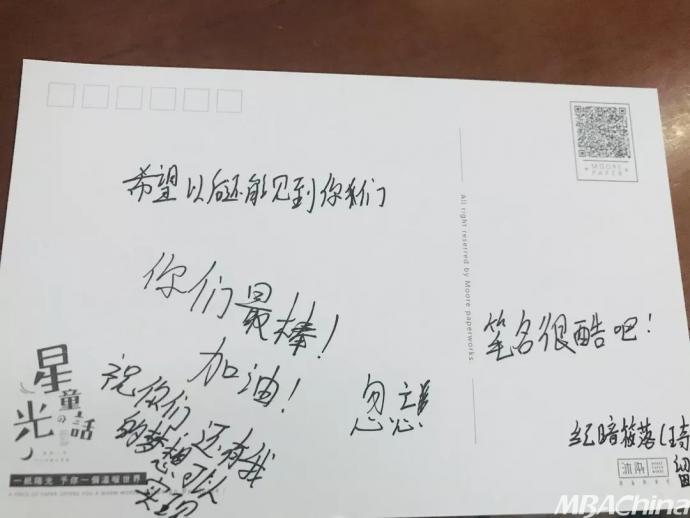 MOORE
PAPER
希望以后还能见到你们
All right reserved by Moore paperworks.
你们最棒！
加油！
祝你们
还有我
的梦想可以
实现
笔名很酷吧！
星光
童话
一纸陽光 予你一個溫暖世界
A PIECE OF PAPER OFFERS YOU A WARM WORLD
MBAChina